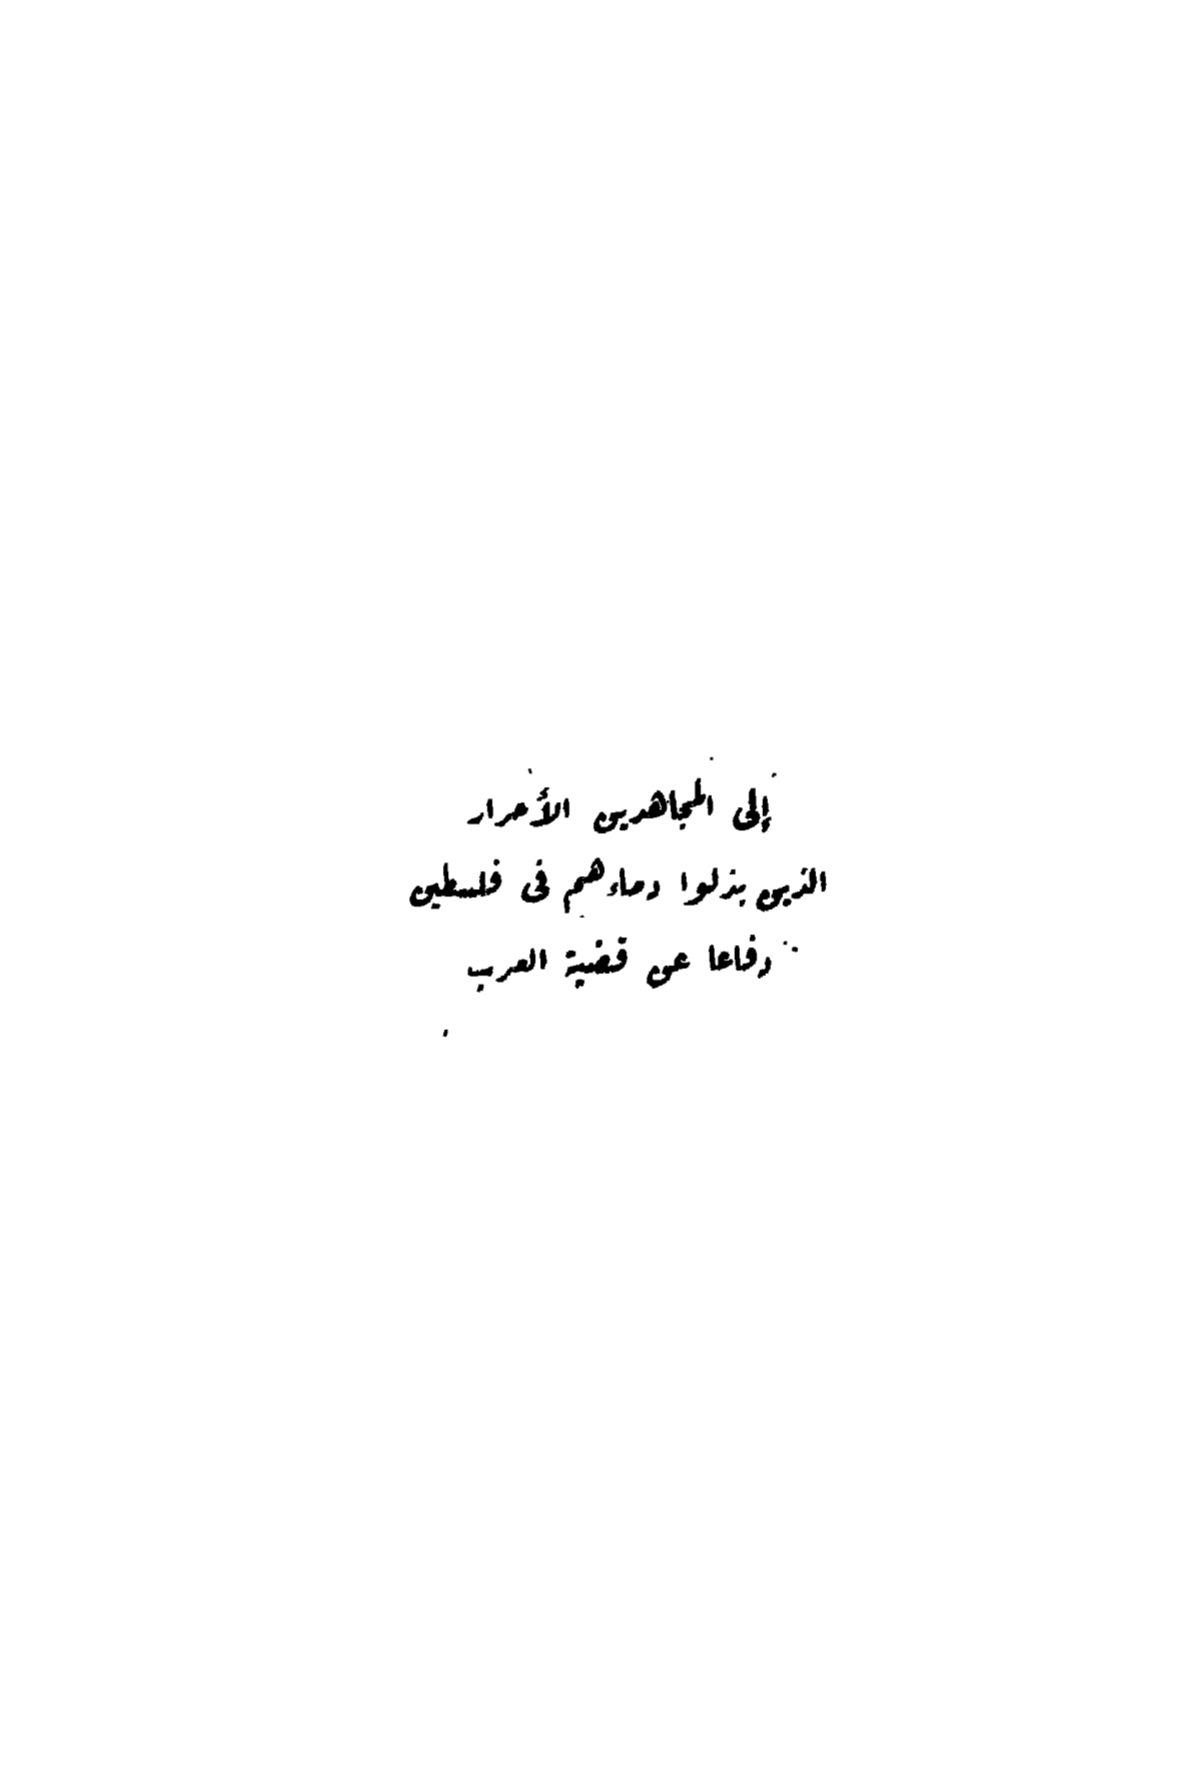 إلى المجاهدين الأحرار
الذين بذلوا دماءهم فى فلسطين
دفاعا عن قضية العرب